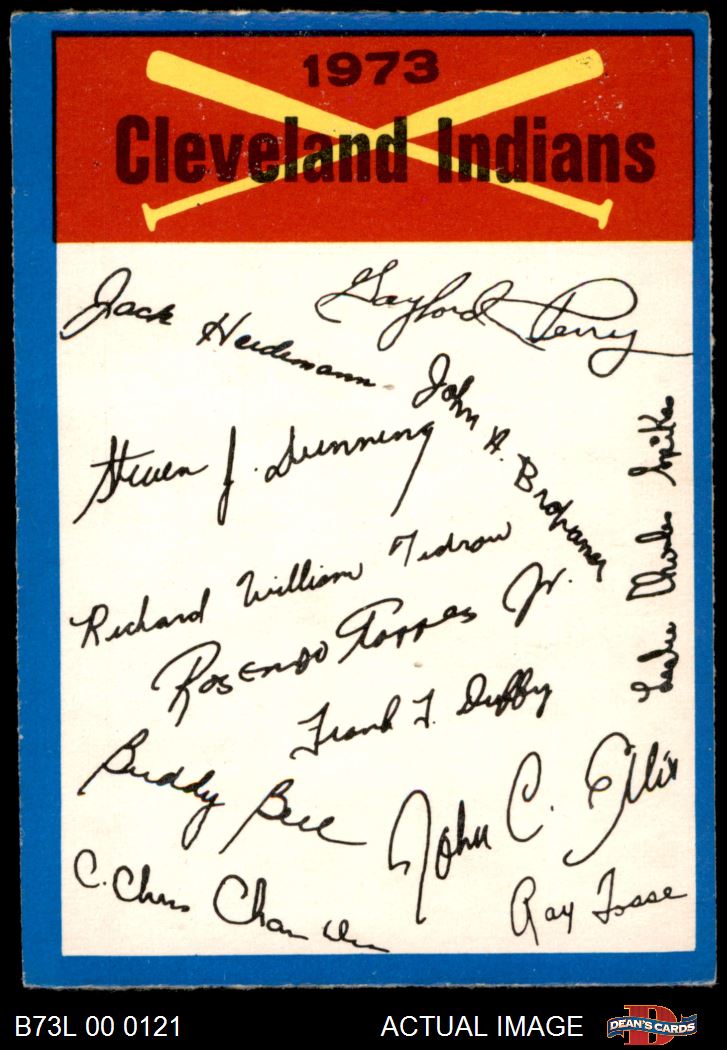 1973
Cleveland Indians
Jack Heidemann
Gaylord Perry
John A. Brohamer
Steven J. Dunning
Leslie Charles Spikes
Richard William Tidrow
Rosendo Torres Jr.
Frank T. Duffy
Buddy Bell
John C. Ellis
C. Chris Cham
Ray Fosse
B73L 00 0121
ACTUAL IMAGE
DEAN'S CARDS